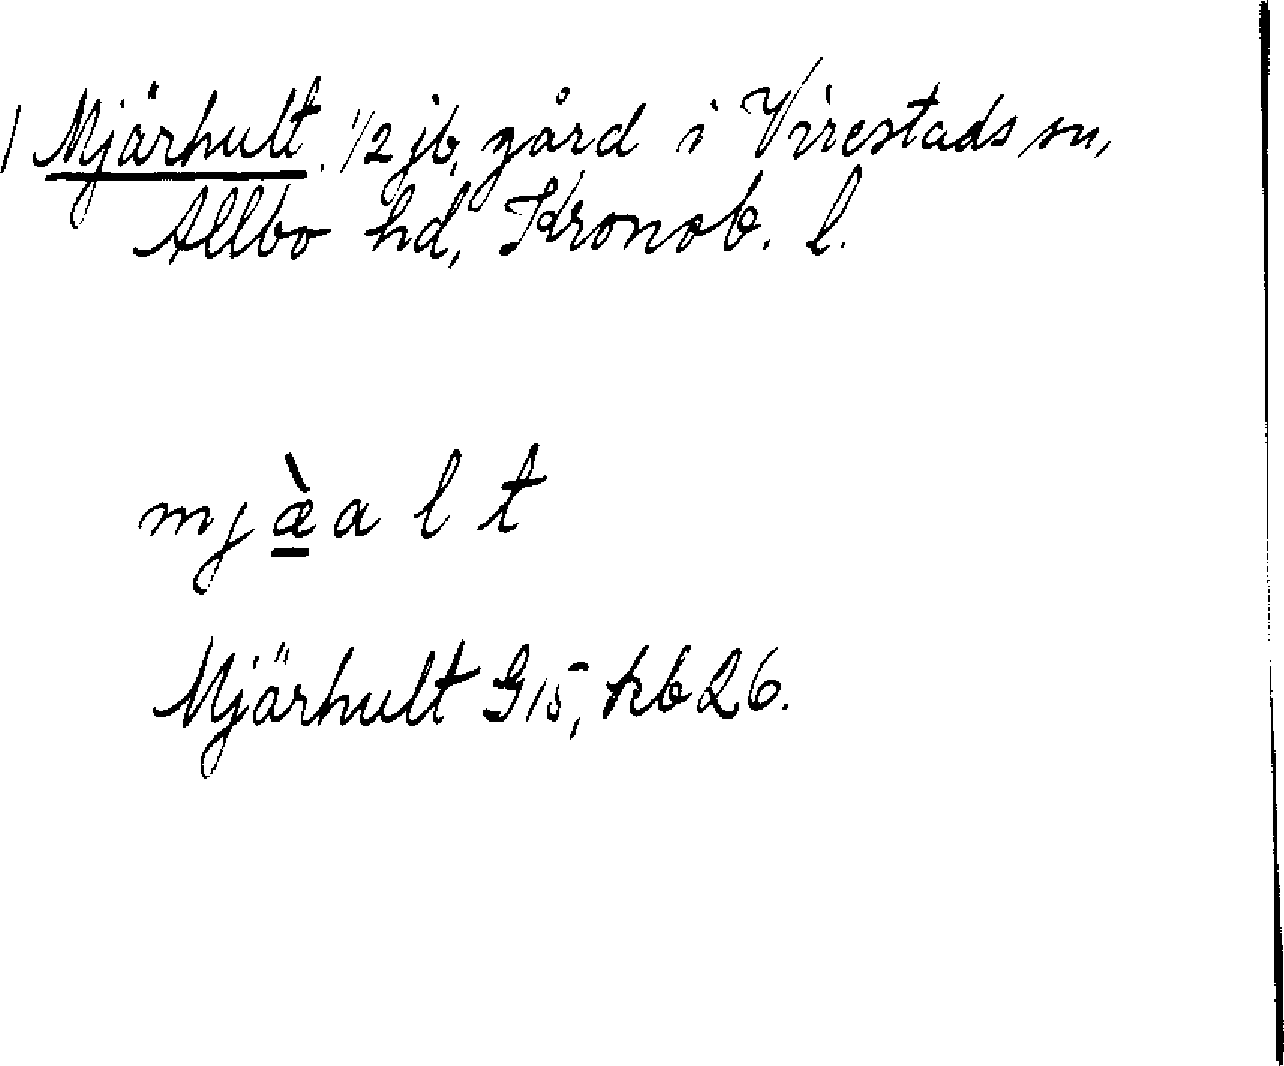 1 Mjärhult. 1/2 jb, gård i Virestads sn,
Allbo hd, Kronob. l.
mj æ̠̀ a l t
Mjärhult G15, kb 26.